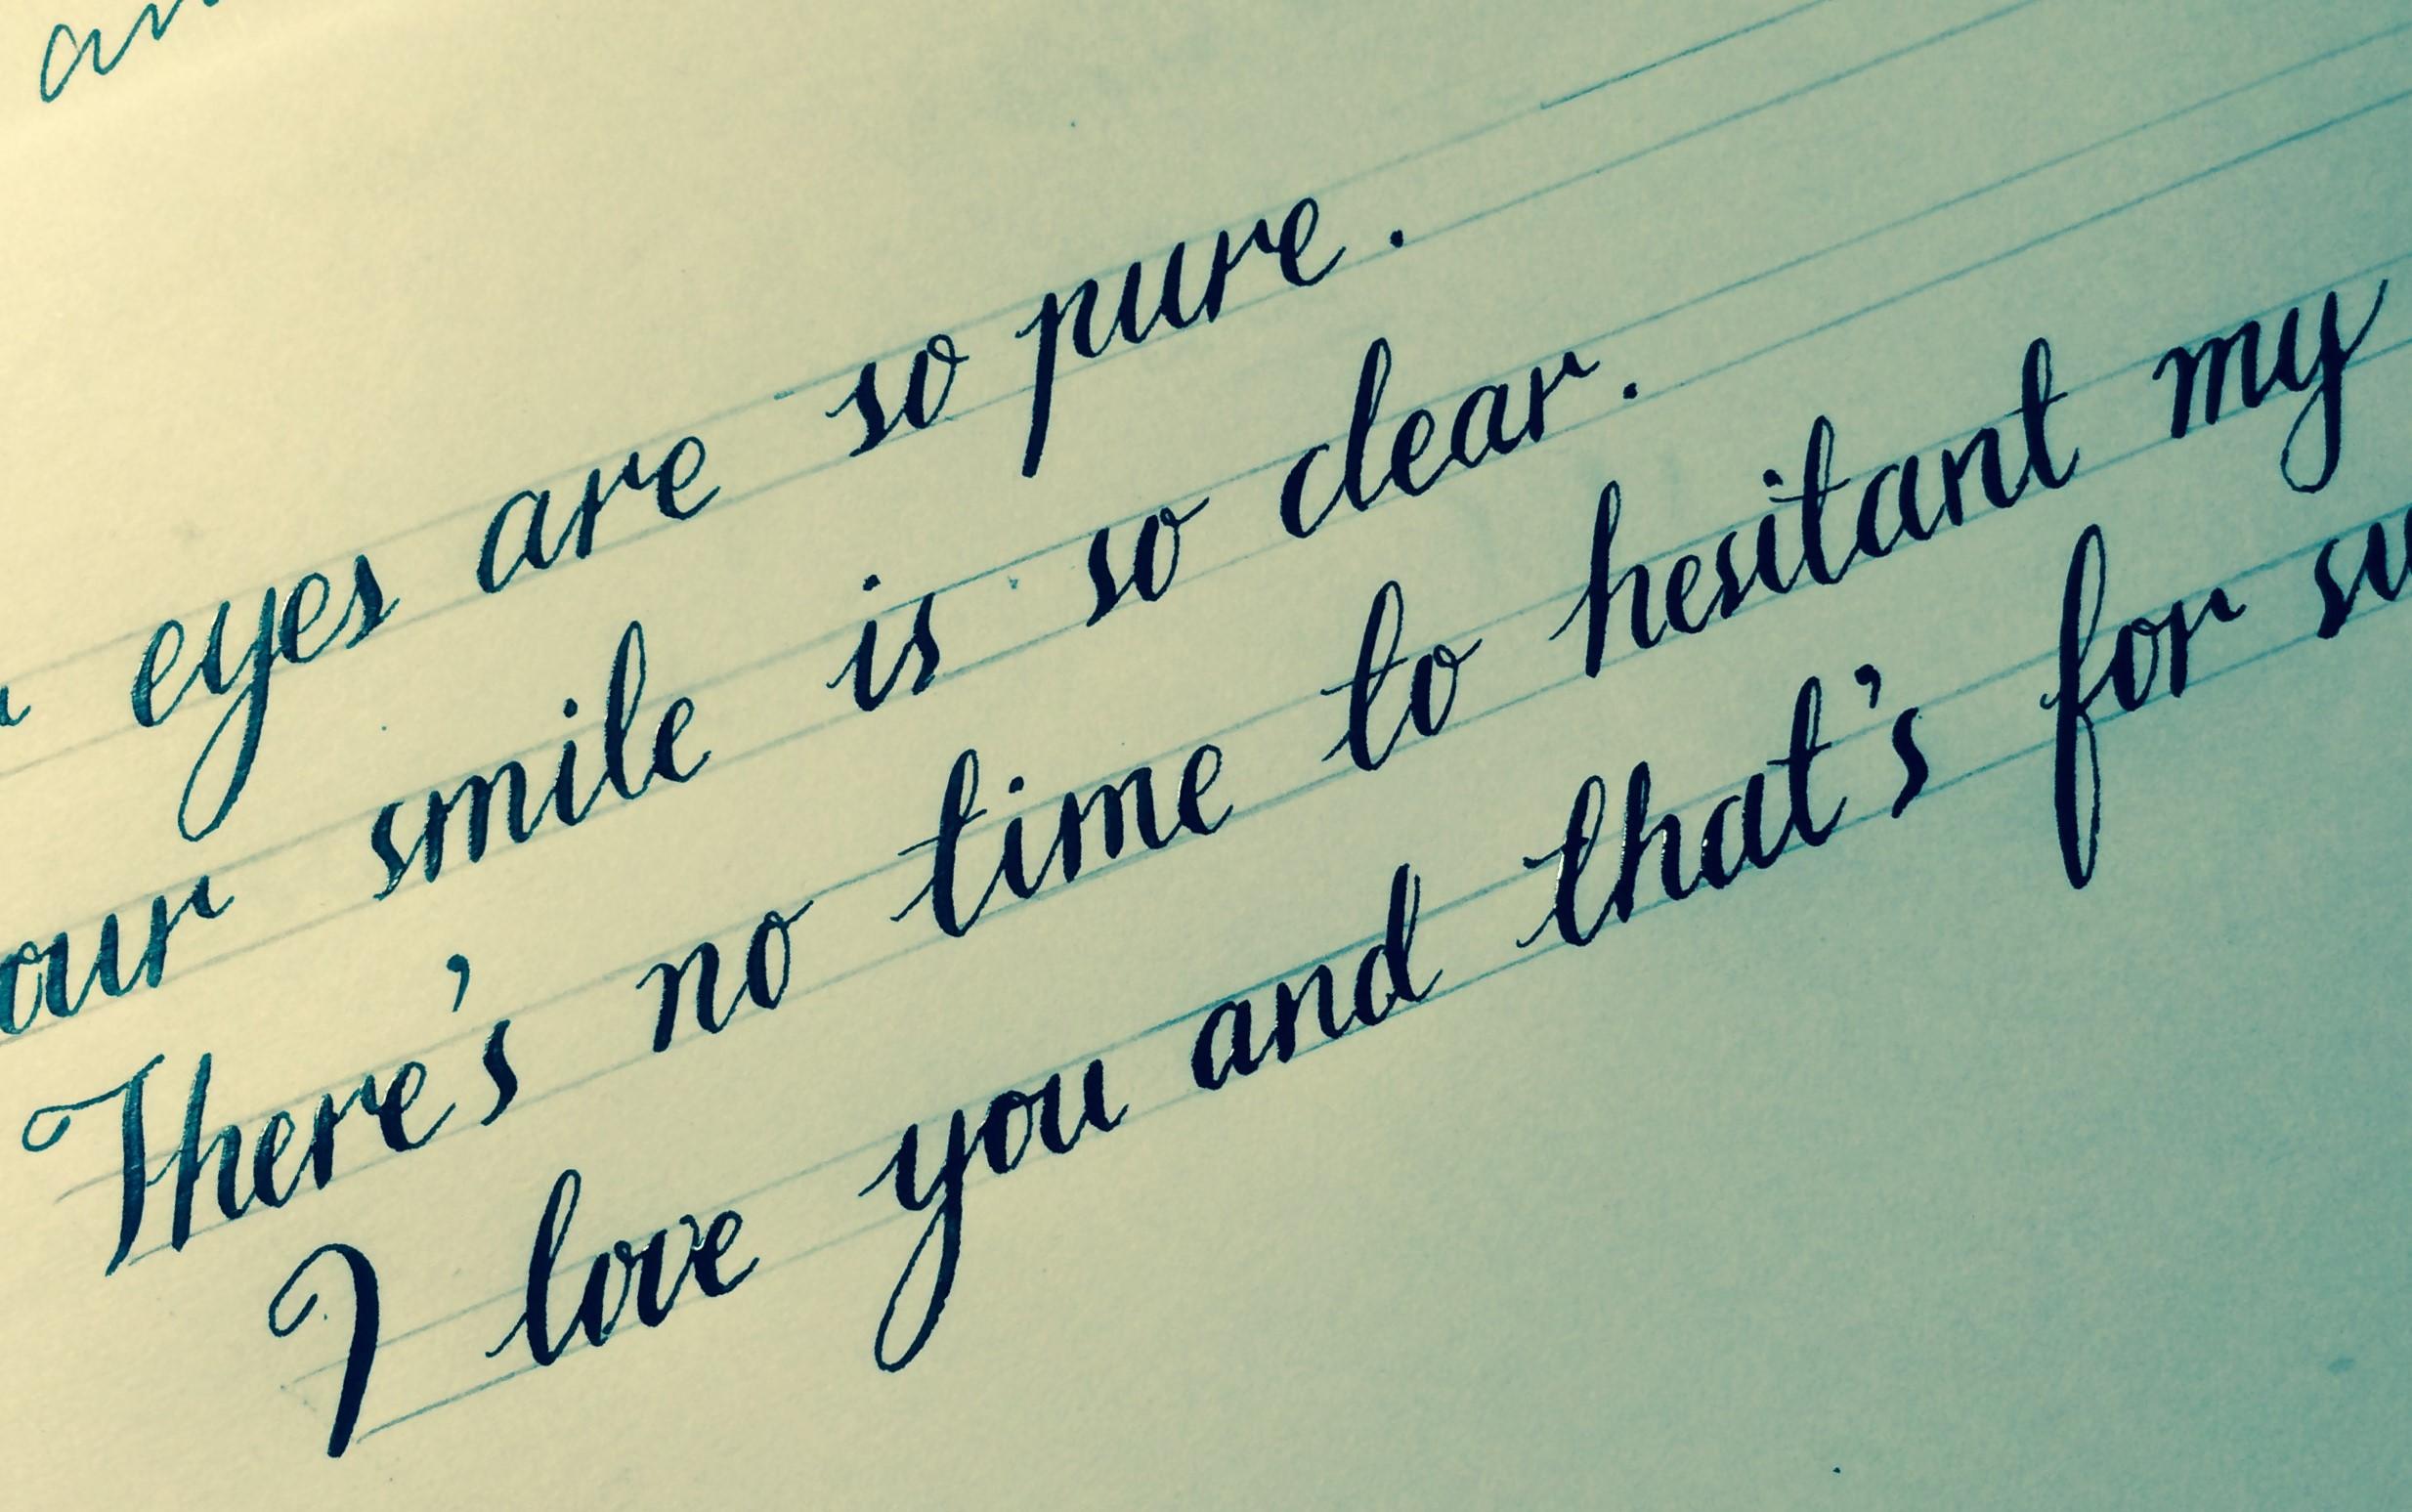 an
eyes are so pure.
our smile is so clear.
There's no time to hesitant my
I love you and that's for su